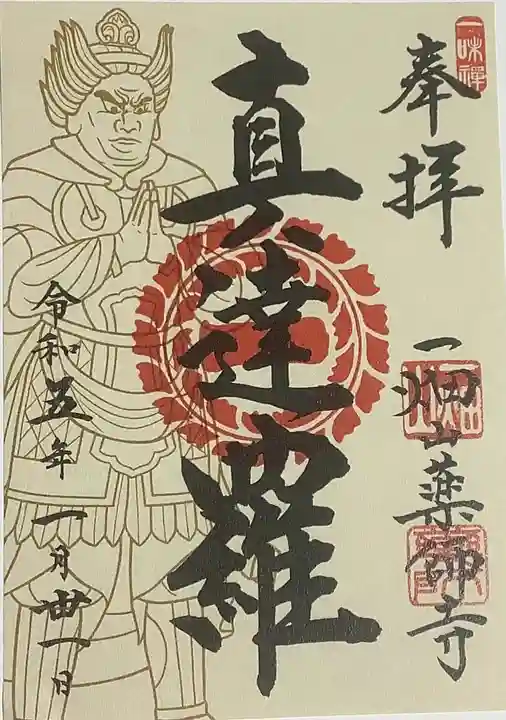 一味禪
奉拝
一畑山薬師寺
真達羅
令和五年一月卅一日